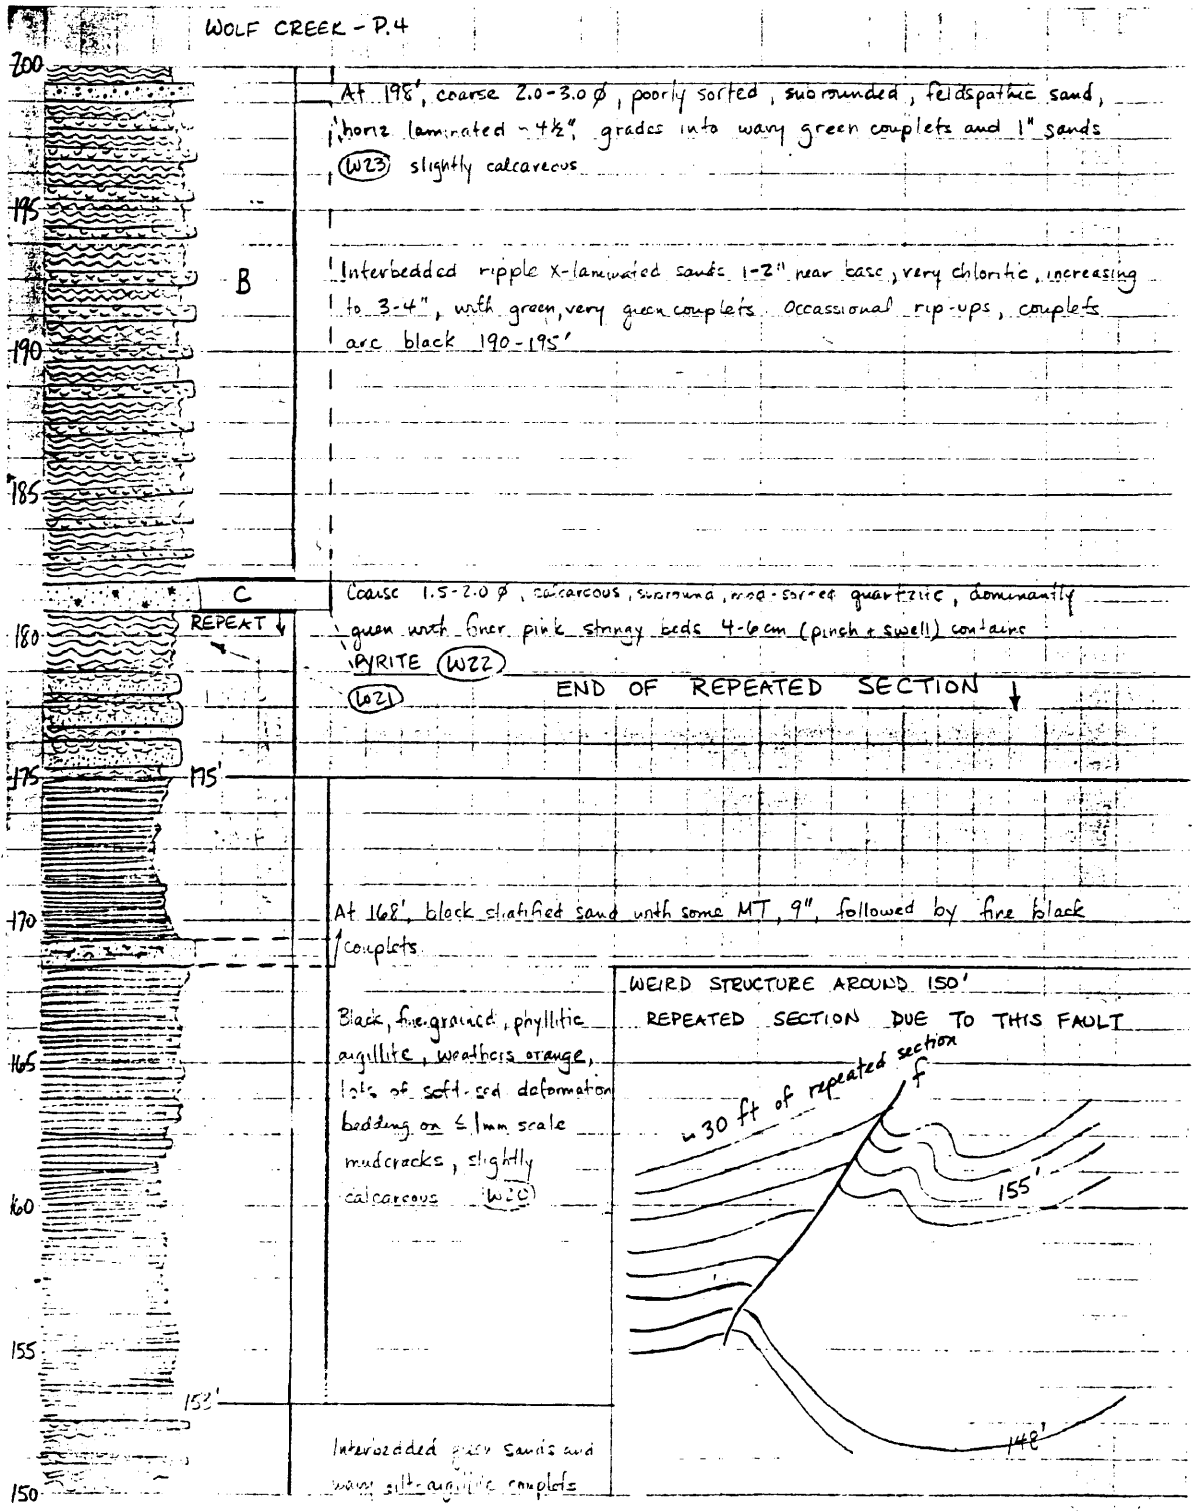 WOLF CREEK - P.4
200
At 198', coarse 2.0-3.0 ø, poorly sorted, subrounded, feldspathic sand,
horiz laminated ~ 4½", grades into wavy green couplets and 1" sands
(W23) slightly calcareous
195
B
Interbedded ripple x-laminated sands 1-2" near base, very chloritic, increasing
to 3-4", with green, very green couplets. Occassional rip-ups, couplets
are black 190-195'
190
185
C
Coarse 1.5-2.0 ø, calcareous, subround, mod-sorted quartzite, dominantly
REPEAT ↓
180
green with finer pink stringy beds 4-6 cm (pinch + swell) contains
PYRITE (W22)
(W21)
END OF REPEATED SECTION ↓
175
175'
At 168', black stratified sand with some MT, 9", followed by fine black
170
couplets
WEIRD STRUCTURE AROUND 150'
REPEATED SECTION DUE TO THIS FAULT
Black, fine-grained, phyllitic
argillite, weathers orange,
165
lots of soft-sed deformation
bedding on ≤ 1mm scale
mudcracks, slightly
calcareous (W20)
160
~30 ft of repeated section
f
155'
155
153'
148'
Interbedded green sands and
wavy silt-argillite couplets
150